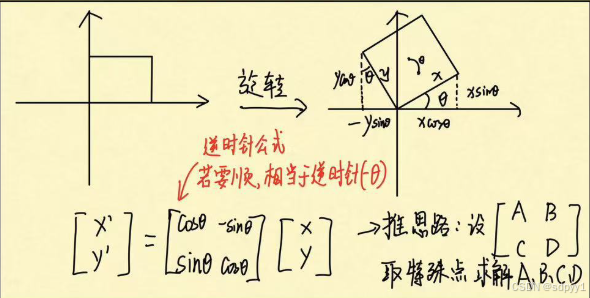 旋转
θ
x
y
ycosθ
θ
θ
xsinθ
-ysinθ
xcosθ
逆时针公式
若要顺,相当于逆时针(-θ)
[x' y'] = [cosθ -sinθ sinθ cosθ] [x y] →推思路:设 [A B C D]
取特殊点求解A,B,C,D
CSDN @sdpyy1